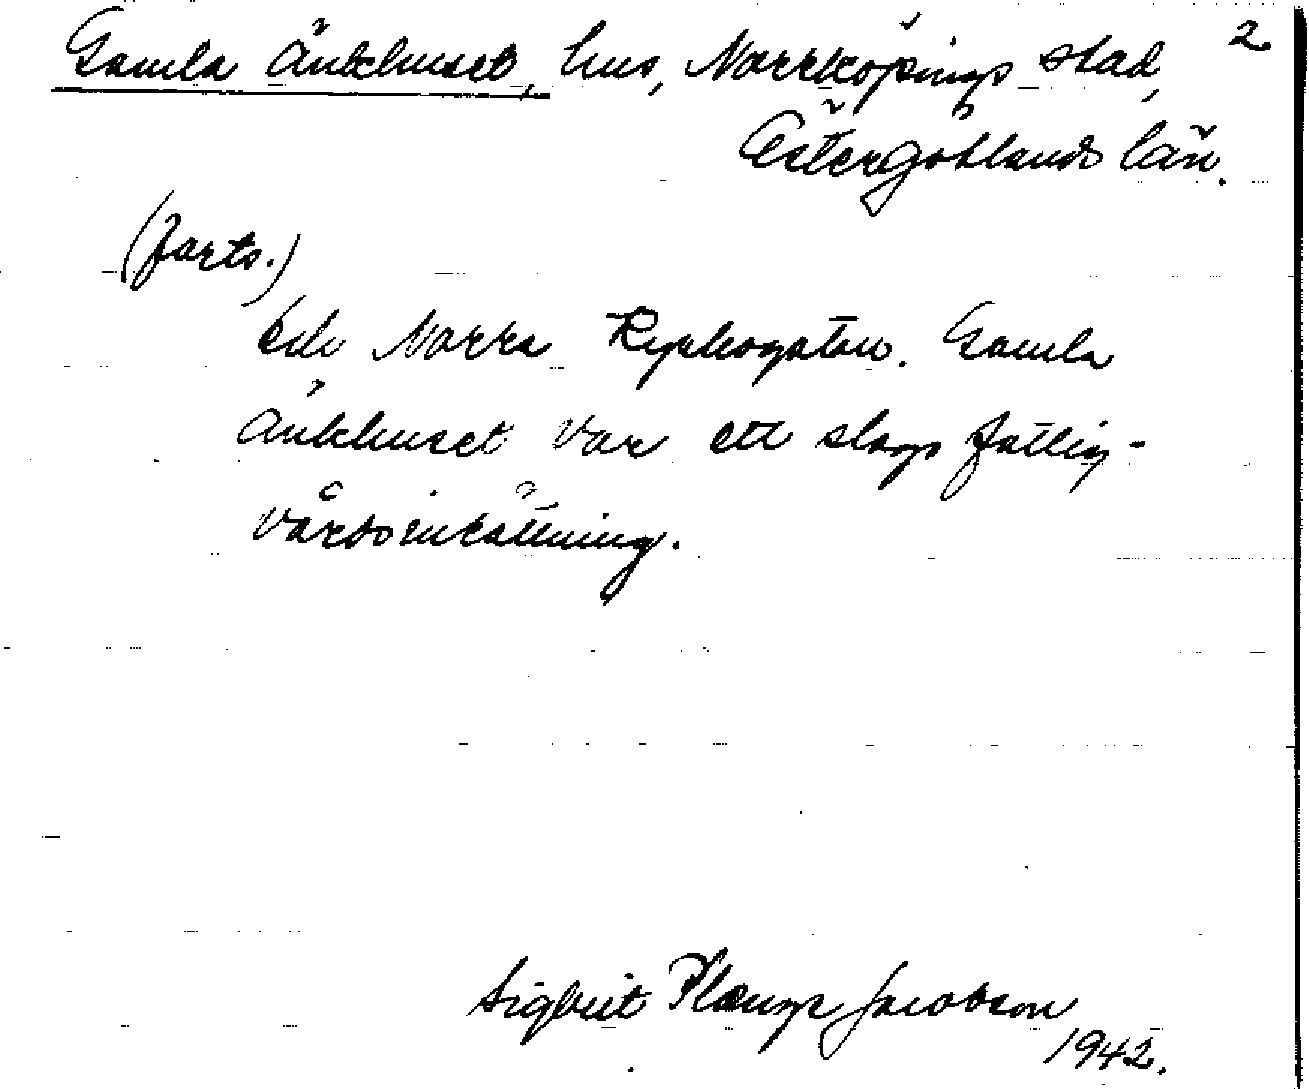 Gamla Änkhuset, hus, Norrköpings stad, 2
Östergötlands län.
(forts.)
och Norra Kyrkogatan. Gamla
Änkhuset var ett slags fattig-
vårdsinrättning.
Sigbrit Plænge Jacobson
1942.